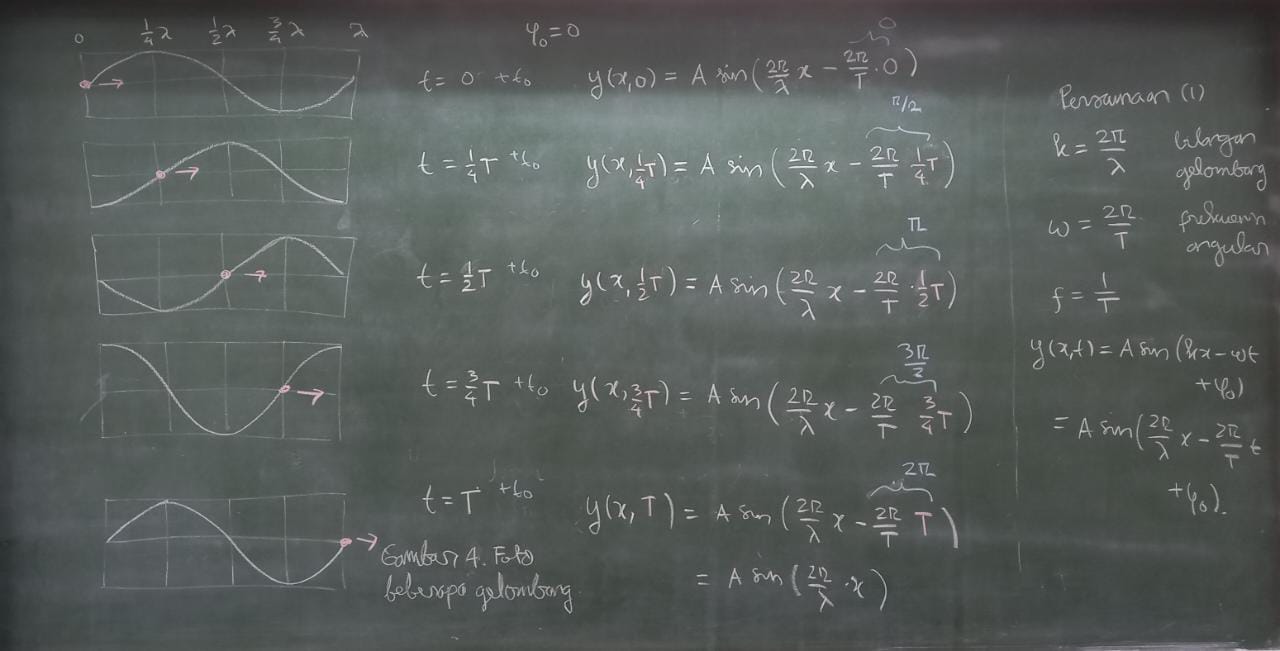 0 1/4 λ 1/2 λ 3/4 λ λ
φ₀ = 0
0
t = 0 + t₀ y(x,0) = A sin(2π/λ x − 2π/T · 0)
π/2
t = 1/4 T + t₀ y(x, 1/4 T) = A sin(2π/λ x − 2π/T 1/4 T)
π
t = 1/2 T + t₀ y(x, 1/2 T) = A sin(2π/λ x − 2π/T · 1/2 T)
3π/2
t = 3/4 T + t₀ y(x, 3/4 T) = A sin(2π/λ x − 2π/T 3/4 T)
2π
t = T + t₀ y(x, T) = A sin(2π/λ x − 2π/T T)
= A sin(2π/λ · x)
Gambar 4. Foto
beberapa gelombang
Persamaan (1)
k = 2π/λ bilangan
gelombang
ω = 2π/T frekuensi
angular
f = 1/T
y(x,t) = A sin(kx − ωt
+ φ₀)
= A sin(2π/λ x − 2π/T t
+ φ₀).